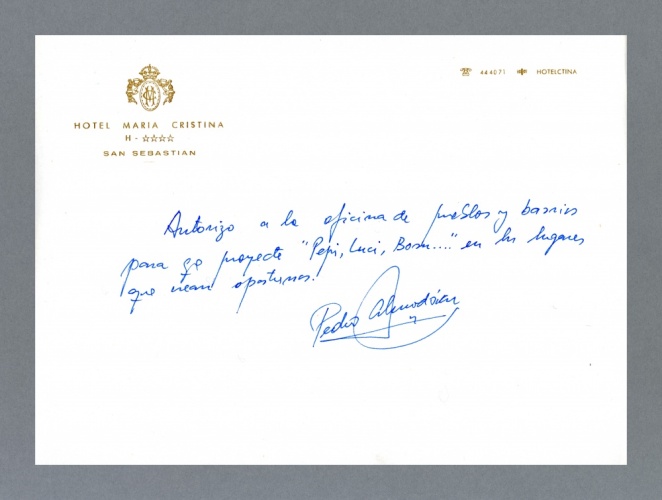 ☎ 444071 HOTELCTINA
HOTEL MARIA CRISTINA
H - ☆☆☆☆
SAN SEBASTIAN
Autorizo a la oficina de pueblos y barrios
para qe proyecte "Pepi, Luci, Bom...." en los lugares
que vean oportunos.
Pedro Almodóvar